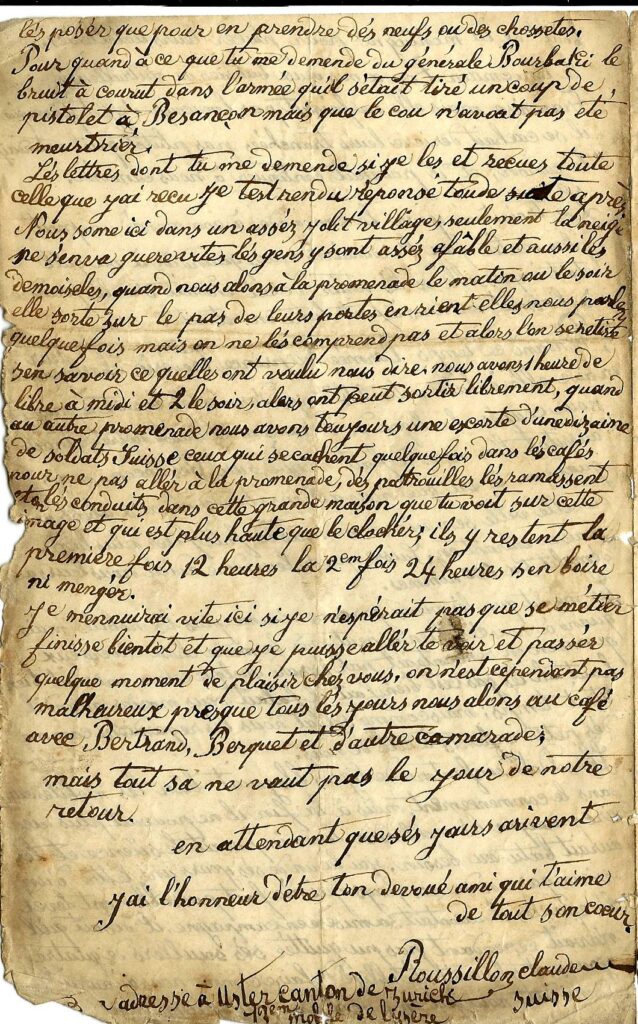 lés poser que pour en prendre dés neufs ou des chossetes.
Pour quand à ce que tu me demende du générale Bourbaki le
bruit à courut dans l'armée qu'il s'était tiré un coup de
pistolet à Besançon mais que le cou n'avait pas été
meurtrier.
Lés lettres dont tu me demende si ye les et recues toute
celle que yai recu ye t'est rendu réponse toude suite après
Nous some ici dans un asséz yolit village, seulement la neige
ne s'en va guere vites lés gens y sont asséz afâble et aussi lés
demoiseles, quand nous alons à la promenade le matin ou le soir
elle sorte sur le pas de leurs portes en rient elles nous parlent
quelquefois mais on ne lés comprend pas et alors l'on se retire
sen savoir ce quelles ont voulu nous dire, nous avons 1 heure de
libre à midi et 2 le soir, alors ont peut sortir librement, quand
au autre promenade nous avons touyours une escorte d'une dizaine
de soldats Suisse ceux qui se cachent quelquefois dans lés cafés
pour ne pas allér à la promenade, dés patrouilles lés ramassent
et lés conduits dans cette grande maison que tu voit sur cette
image et qui est plus haute que le clocher; ils y restent la
première fois 12 heures la 2em fois 24 heures sen boire
ni mengér.
Ye mennuirai vite ici si ye n'espérait pas que se métier
finisse bientot et que ye puisse allér te voir et passér
quelque moment de plaisir chéz vous, on n'est cépendant pas
malheureux presque tous lés yours nous alons au café
avec Bertrand, Berquet et d'autre camarade;
mais tout sa ne vaut pas le your de notre
retour.
en attendant que sés yours arivent
yai l'honneur d'être ton devoué ami qui t'aime
de tout son coeur.
Roussillon claude
l'adresse à Uster canton de Zurich Suisse
de l'isere